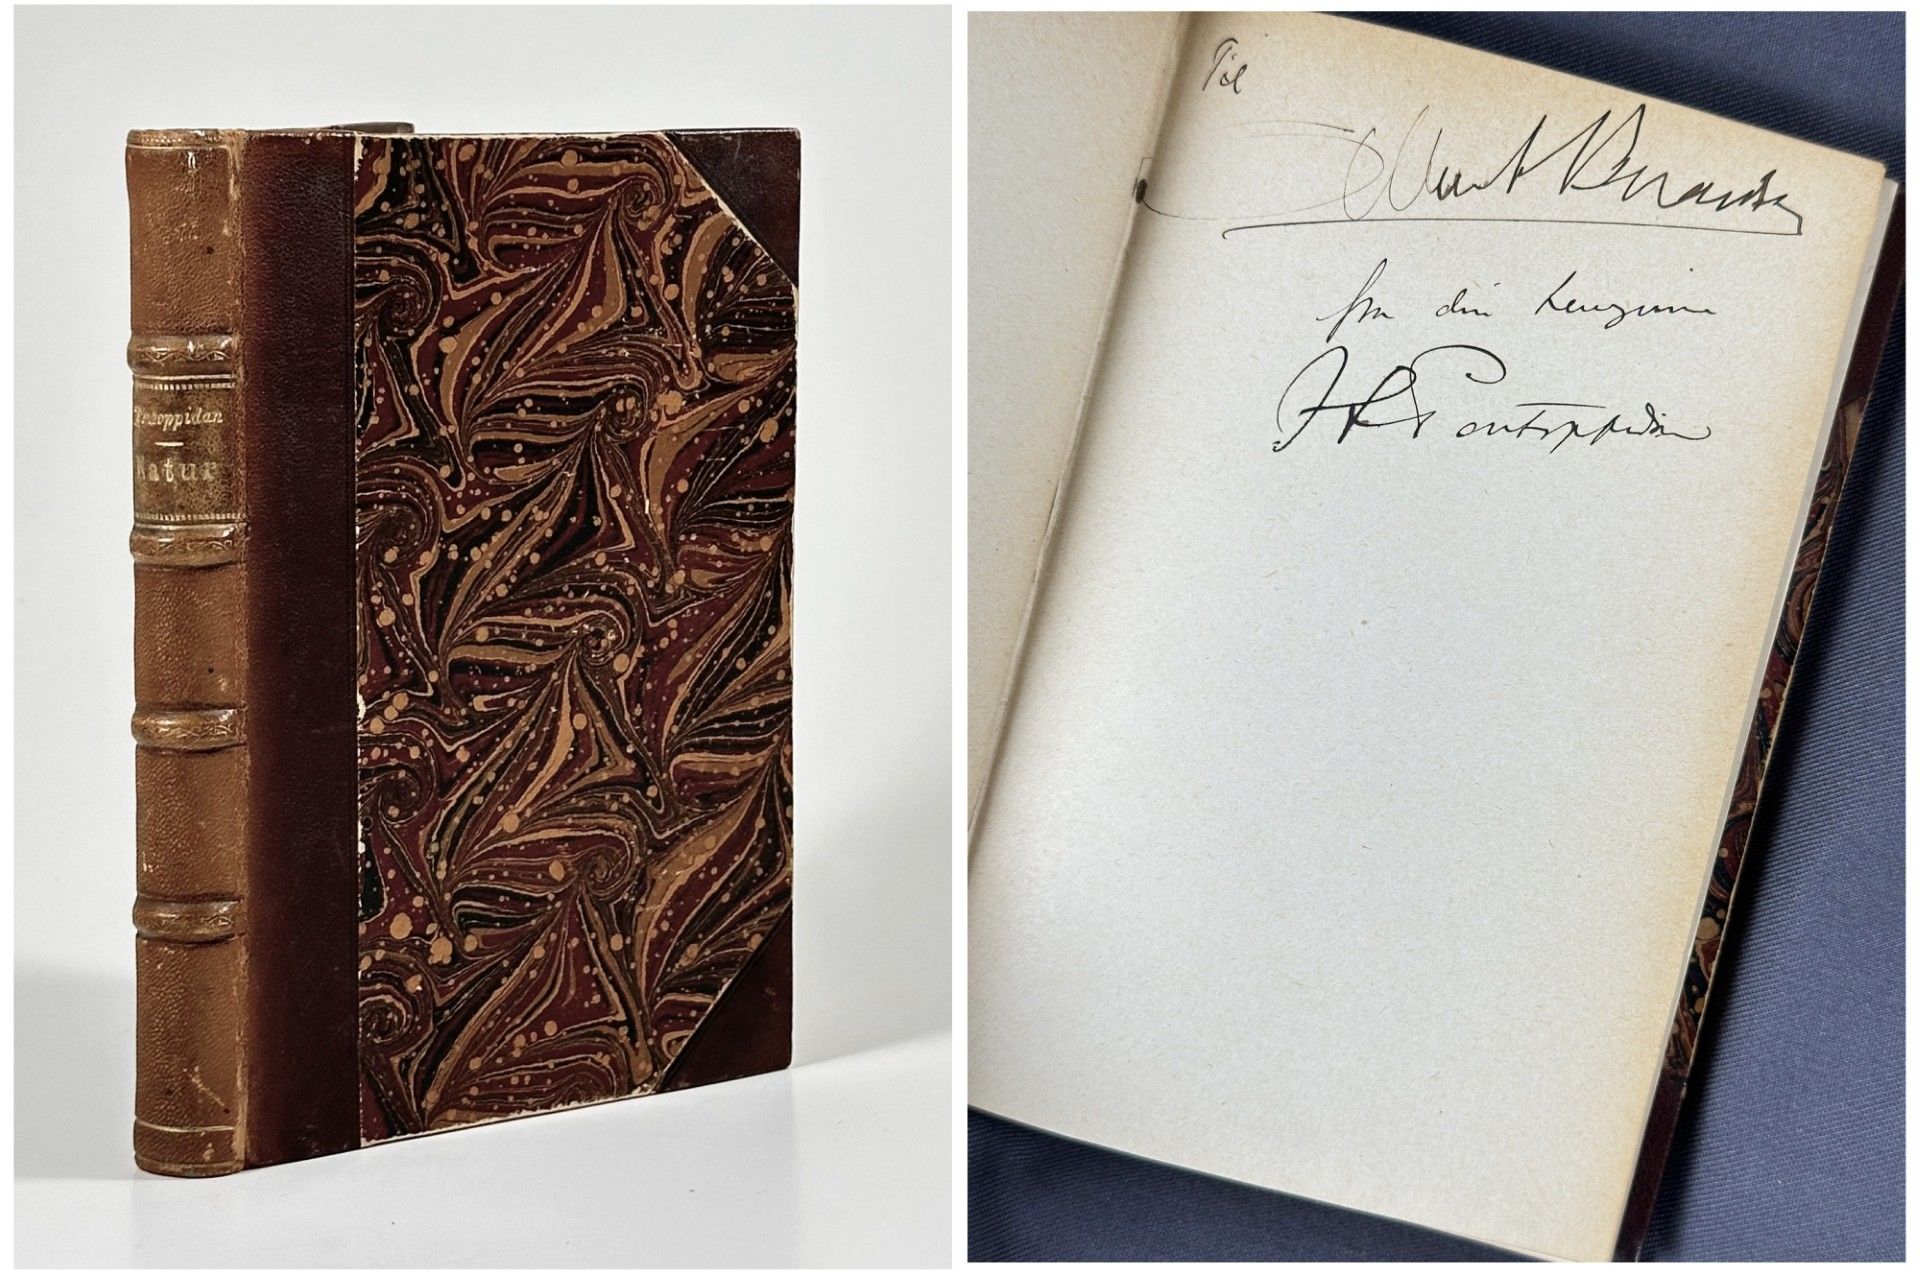 Pontoppidan
Natur
Til
Edvard Brandes
fra din hengivne
H Pontoppidan